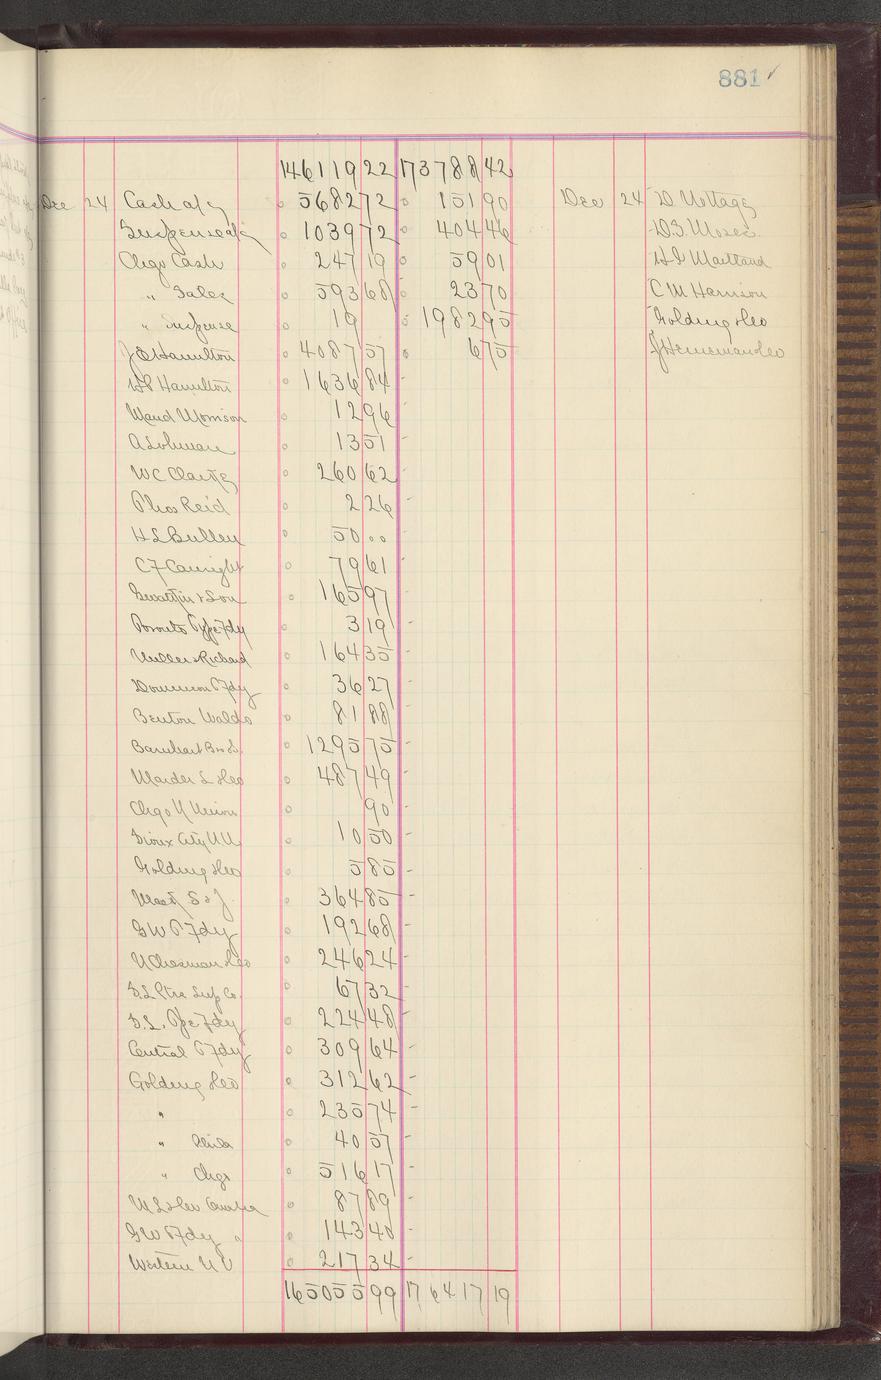 881
146119 22 173788 42
Dec 24 Cash a/c 5682 72 151 90 Dec 24 D. Nottage
Suspense a/c 1039 72 404 46 D.S. Moses
Chgo Cash 247 19 59 01 Maitland
" Sales 593 68 23 70 C M Harrison
" Suspense 19 1982 95 Golding & Co
J E Hamilton 4087 57 6 75 J Heineman & Co
Hamilton 1636 84
Morrison 12 96
A 13 51
W C 260 62
Thos Reid 2 26
H L Bullen 50 00
C F 79 61
& Son 165 97
Toronto Type Fdy 3 19
Miller & Richard 164 35
Dominion T Fdy 36 27
Benton Waldo 81 88
Barnhart Bros & S. 1295 75
Marder L & Co 487 49
Chgo N Union 90
Sioux City N U 10 50
Golding & Co 5 85
364 85
G W T Fdy 192 68
N Chesman & Co 246 24
S. L. Ptrs Sup Co. 67 32
S. L. Type Fdy 224 48
Central T Fdy 309 64
Golding & Co 312 62
" 235 74
" Phila 40 57
" Chgo 516 17
M L & Co Omaha 87 89
G W T Fdy " 143 40
Western N U 217 34
165055 99 176417 19